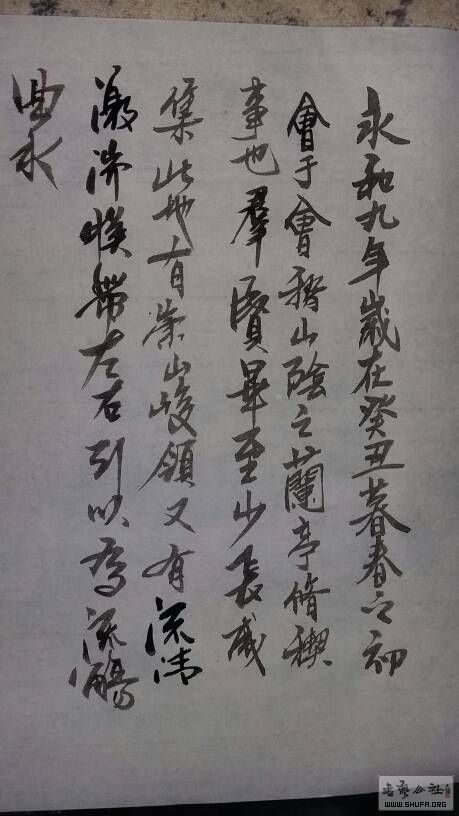 永和九年歲在癸丑暮春之初
會于會稽山陰之蘭亭脩稧
事也羣賢畢至少長咸
集此地有崇山峻領又有流清
激湍暎帶左右引以為流觴
曲水
WWW.SHUFA.ORG